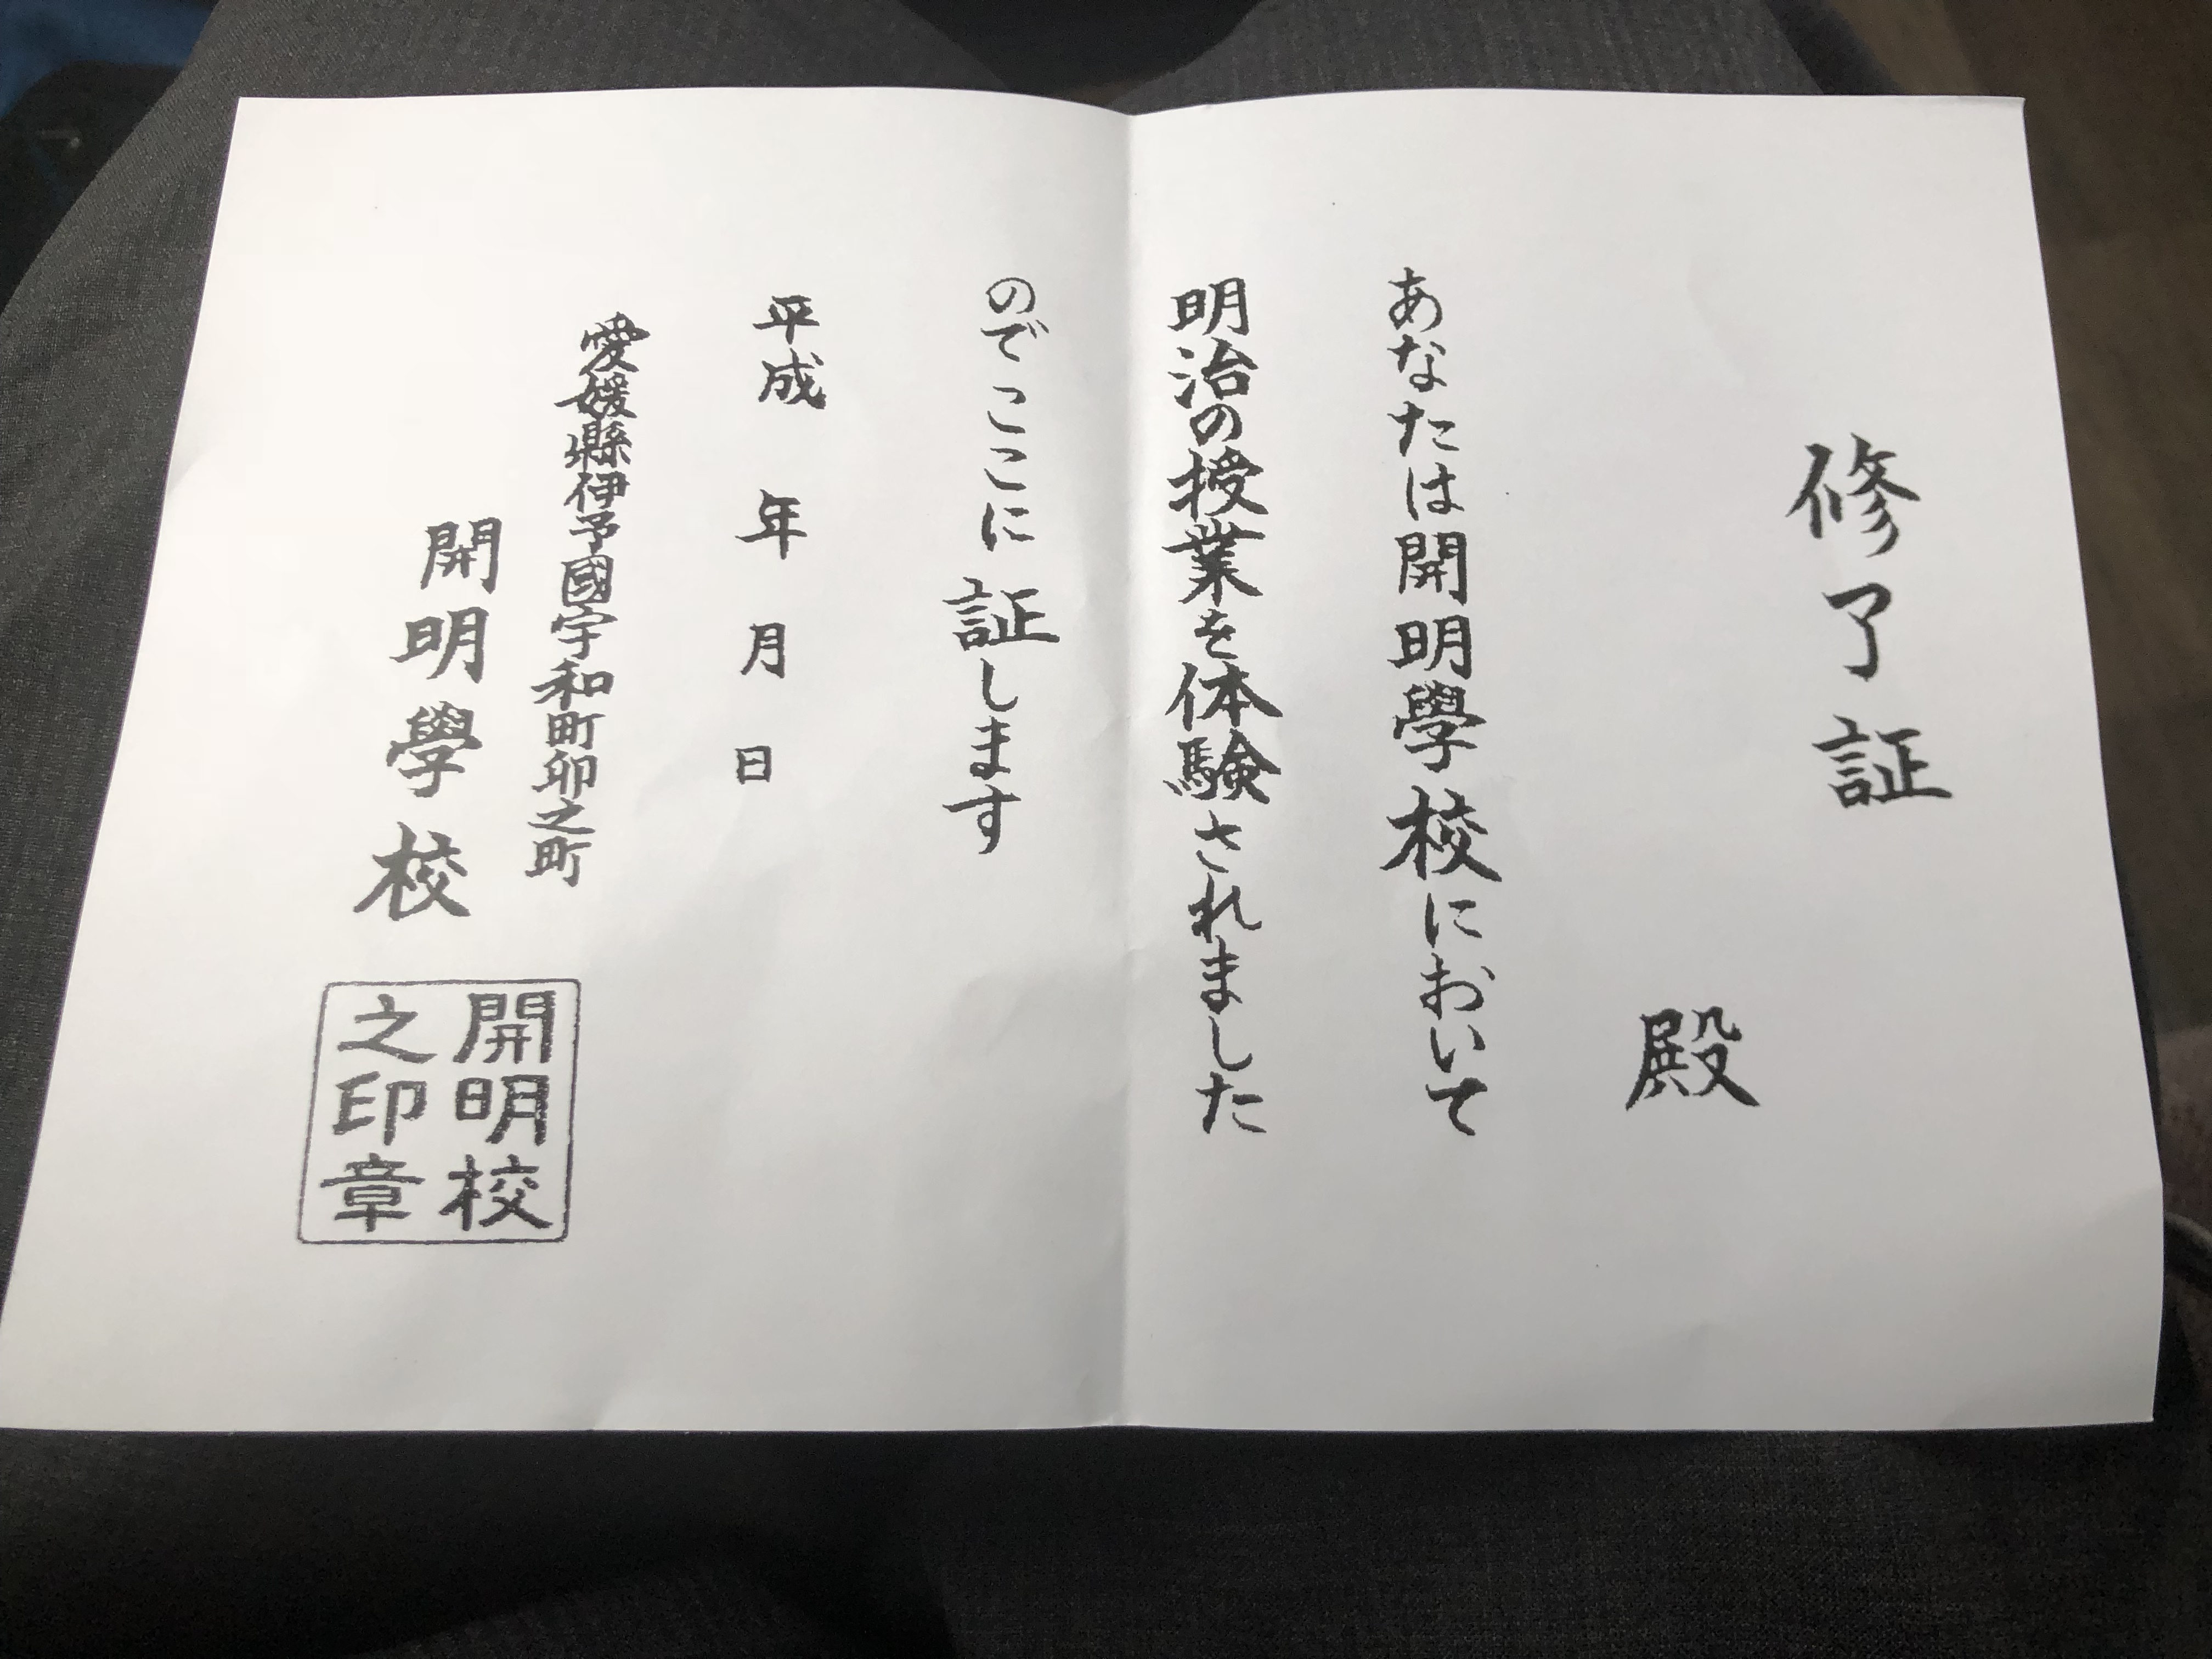 修了証
殿
あなたは開明學校において
明治の授業を体験されました
のでここに証します
平成 年 月 日
愛媛縣伊予國宇和町卯之町
開明學校
開明校
之印章